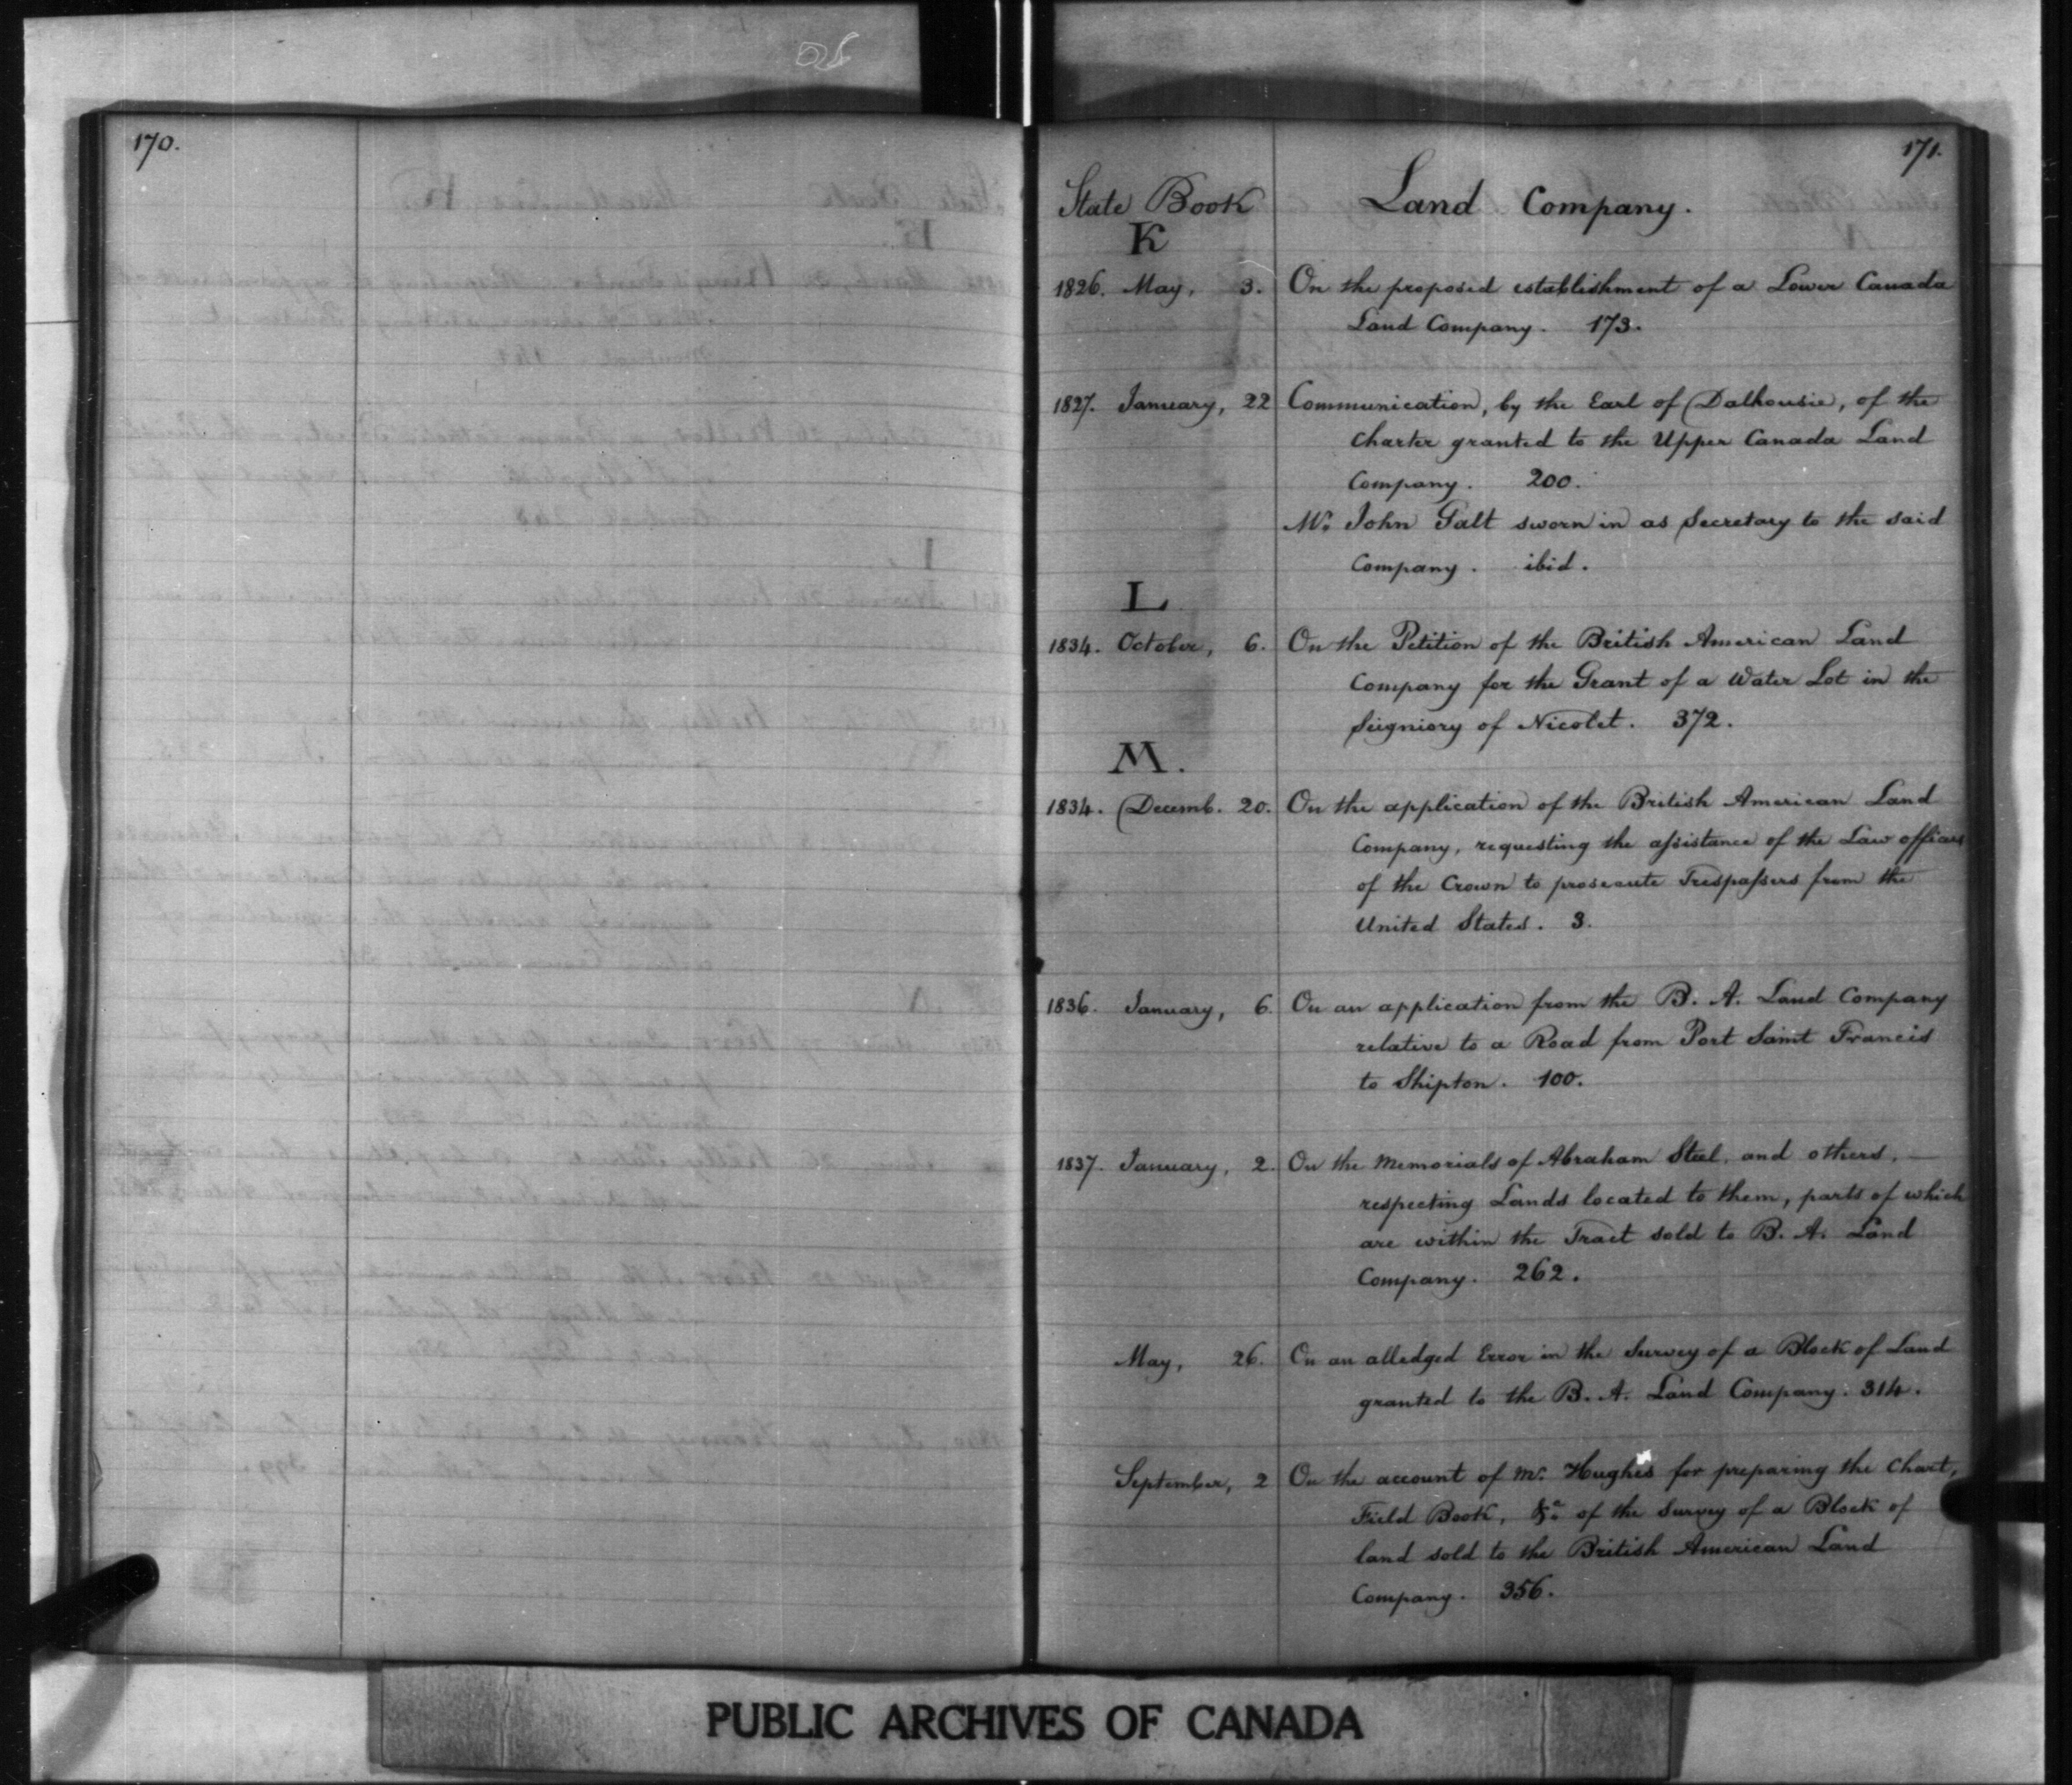 170.
171.
State Book
Land Company.
K
1826. May, 3. On the proposed establishment of a Lower Canada
Land Company. 173.
1827. January, 22 Communication, by the Earl of Dalhousie, of the
Charter granted to the Upper Canada Land
Company. 200.
Mr. John Galt sworn in as Secretary to the said
Company. ibid.
L
1834. October, 6. On the Petition of the British American Land
Company for the Grant of a Water Lot in the
Seigniory of Nicolet. 372.
M.
1834. Decemb. 20. On the application of the British American Land
Company, requesting the assistance of the Law officers
of the Crown to prosecute Trespassers from the
United States. 3.
1836. January, 6. On an application from the B. A. Land Company
relative to a Road from Port Saint Francis
to Shipton. 100.
1837. January, 2. On the Memorials of Abraham Steel, and others,
respecting Lands located to them, parts of which
are within the Tract sold to B. A. Land
Company. 262.
May, 26. On an alledged Error in the Survey of a Block of Land
granted to the B. A. Land Company. 314.
September, 2 On the account of Mr. Hughes for preparing the Chart,
Field Book, &a. of the Survey of a Block of
land sold to the British American Land
Company. 356.
PUBLIC ARCHIVES OF CANADA